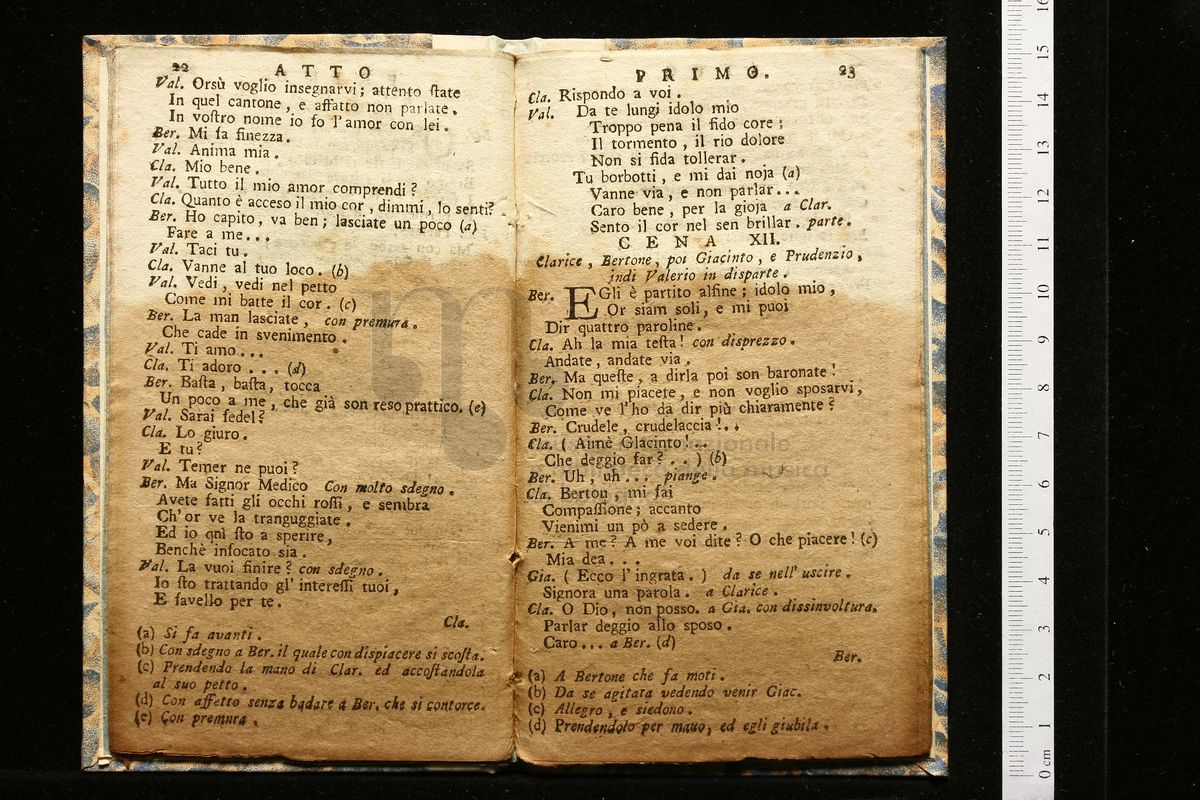 22 ATTO
Val. Orsù voglio insegnarvi; attento ſtate
In quel cantone, e affatto non parlate.
In voſtro nome io fo l'amor con lei.
Ber. Mi fa finezza.
Val. Anima mia.
Cla. Mio bene.
Val. Tutto il mio amor comprendi?
Cla. Quanto è acceso il mio cor, dimmi, lo senti?
Ber. Ho capito, va ben; lasciate un poco (a)
Fare a me...
Val. Taci tu.
Cla. Vanne al tuo loco. (b)
Val. Vedi, vedi nel petto
Come mi batte il cor. (c)
Ber. La man lasciate, con premura.
Che cade in svenimento.
Val. Ti amo...
Cla. Ti adoro ... (d)
Ber. Baſta, baſta, tocca
Un poco a me, che già son reso prattico. (e)
Val. Sarai fedel?
Cla. Lo giuro.
E tu?
Val. Temer ne puoi?
Ber. Ma Signor Medico Con molto sdegno.
Avete fatti gli occhi roſſi, e sembra
Ch'or ve la tranguggiate.
Ed io qnì ſto a sperire,
Benchè infocato sia.
Val. La vuoi finire? con sdegno.
Io ſto trattando gl'intereſſi tuoi,
E favello per te.
Cla.
(a) Si fa avanti.
(b) Con sdegno a Ber. il quale con dispiacere si scoſta.
(c) Prendendo la mano di Clar. ed accoſtandola
al suo petto.
(d) Con affetto senza badare a Ber. che si contorce.
(e) Con premura.
PRIMO. 23
Cla. Rispondo a voi.
Val. Da te lungi idolo mio
Troppo pena il fido core;
Il tormento, il rio dolore
Non si fida tollerar.
Tu borbotti, e mi dai noja (a)
Vanne via, e non parlar...
Caro bene, per la gioja a Clar.
Sento il cor nel sen brillar. parte.
CENA XII.
Clarice, Bertone, poi Giacinto, e Prudenzio,
indi Valerio in disparte.
Ber. EGli è partito alfine; idolo mio,
Or siam soli, e mi puoi
Dir quattro paroline.
Cla. Ah la mia teſta! con disprezzo.
Andate, andate via.
Ber. Ma queſte, a dirla poi son baronate!
Cla. Non mi piacete, e non voglio sposarvi,
Come ve l'ho da dir più chiaramente?
Ber. Crudele, crudelaccia!..
Cla. (Aimè Glacinto!..
Che deggio far?..) (b)
Ber. Uh, uh... piange.
Cla. Berton, mi fai
Compaſſione; accanto
Vienimi un pò a sedere.
Ber. A me? A me voi dite? O che piacere! (c)
Mia dea...
Gia. (Ecco l'ingrata.) da se nell'uscire.
Signora una parola. a Clarice.
Cla. O Dio, non posso. a Gia. con dissinvoltura.
Parlar deggio allo sposo.
Caro... a Ber. (d)
Ber.
(a) A Bertone che fa moti.
(b) Da se agitata vedendo venir Giac.
(c) Allegro, e siedono.
(d) Prendendolo per mano, ed egli giubila.
0 cm 1 2 3 4 5 6 7 8 9 10 11 12 13 14 15 16